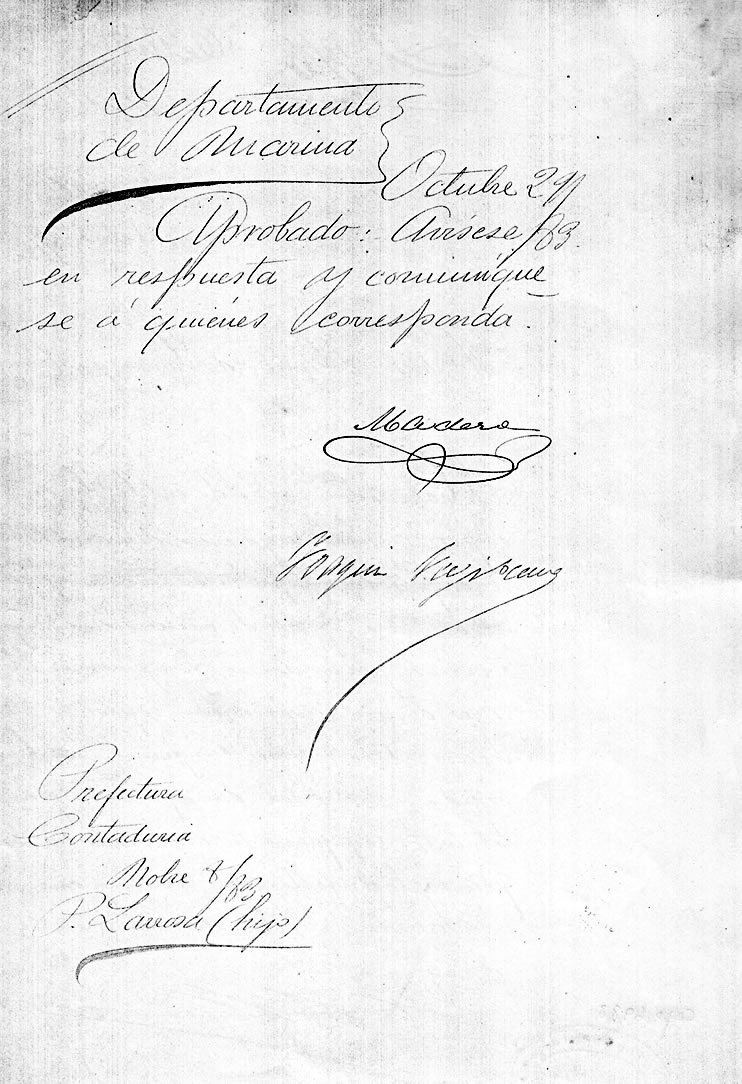 Departamento
de Marina
Octubre 29/83.
Aprobado: Avísese
en respuesta y comuníque
se á quiénes corresponda.
Madero
Joaquin
Prefectura
Contaduria
Nobre 8/83
P. Larrosa (hijo)